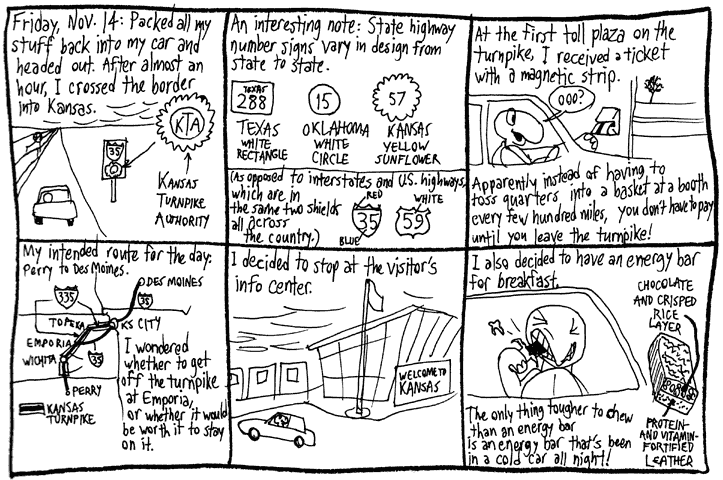 Friday, Nov. 14: Packed all my
stuff back into my car and
headed out. After almost an
hour, I crossed the border
into Kansas.
KTA
35
KANSAS
TURNPIKE
AUTHORITY
An interesting note: State highway
number signs vary in design from
state to state.
TEXAS
288
15
57
TEXAS
WHITE
RECTANGLE
OKLAHOMA
WHITE
CIRCLE
KANSAS
YELLOW
SUNFLOWER
(As opposed to interstates and U.S. highways,
which are in
the same two shields
all across
the country.)
RED
35
BLUE
WHITE
59
At the first toll plaza on the
turnpike, I received a ticket
with a magnetic strip.
OOO?
Apparently instead of having to
toss quarters into a basket at a booth
every few hundred miles, you don't have to pay
until you leave the turnpike!
My intended route for the day:
Perry to Des Moines.
335
DES MOINES
35
TOPEKA
KS CITY
EMPORIA
WICHITA
35
PERRY
KANSAS
TURNPIKE
I wondered
whether to get
off the turnpike
at Emporia,
or whether it would
be worth it to stay
on it.
I decided to stop at the visitor's
info center.
WELCOME TO
KANSAS
I also decided to have an energy bar
for breakfast.
CHOCOLATE
AND CRISPED
RICE
LAYER
The only thing tougher to chew
than an energy bar
is an energy bar that's been
in a cold car all night!
PROTEIN-
AND VITAMIN-
FORTIFIED
LEATHER